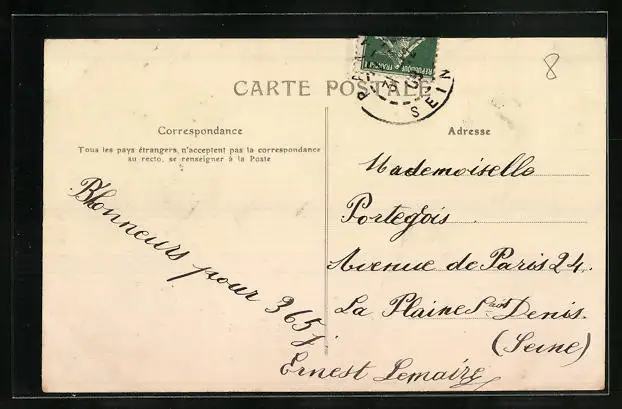 8
REPUBLIQUE FRANÇAISE
CARTE POSTALE
SEIN
Correspondance
Tous les pays étrangers n'acceptent pas la correspondance
au recto, se renseigner à la Poste
Adresse
Mademoiselle
Portegois
Avenue de Paris 24.
La Plaine St Denis.
(Seine)
Bhonneurs pour 365 j
Ernest Lemaire